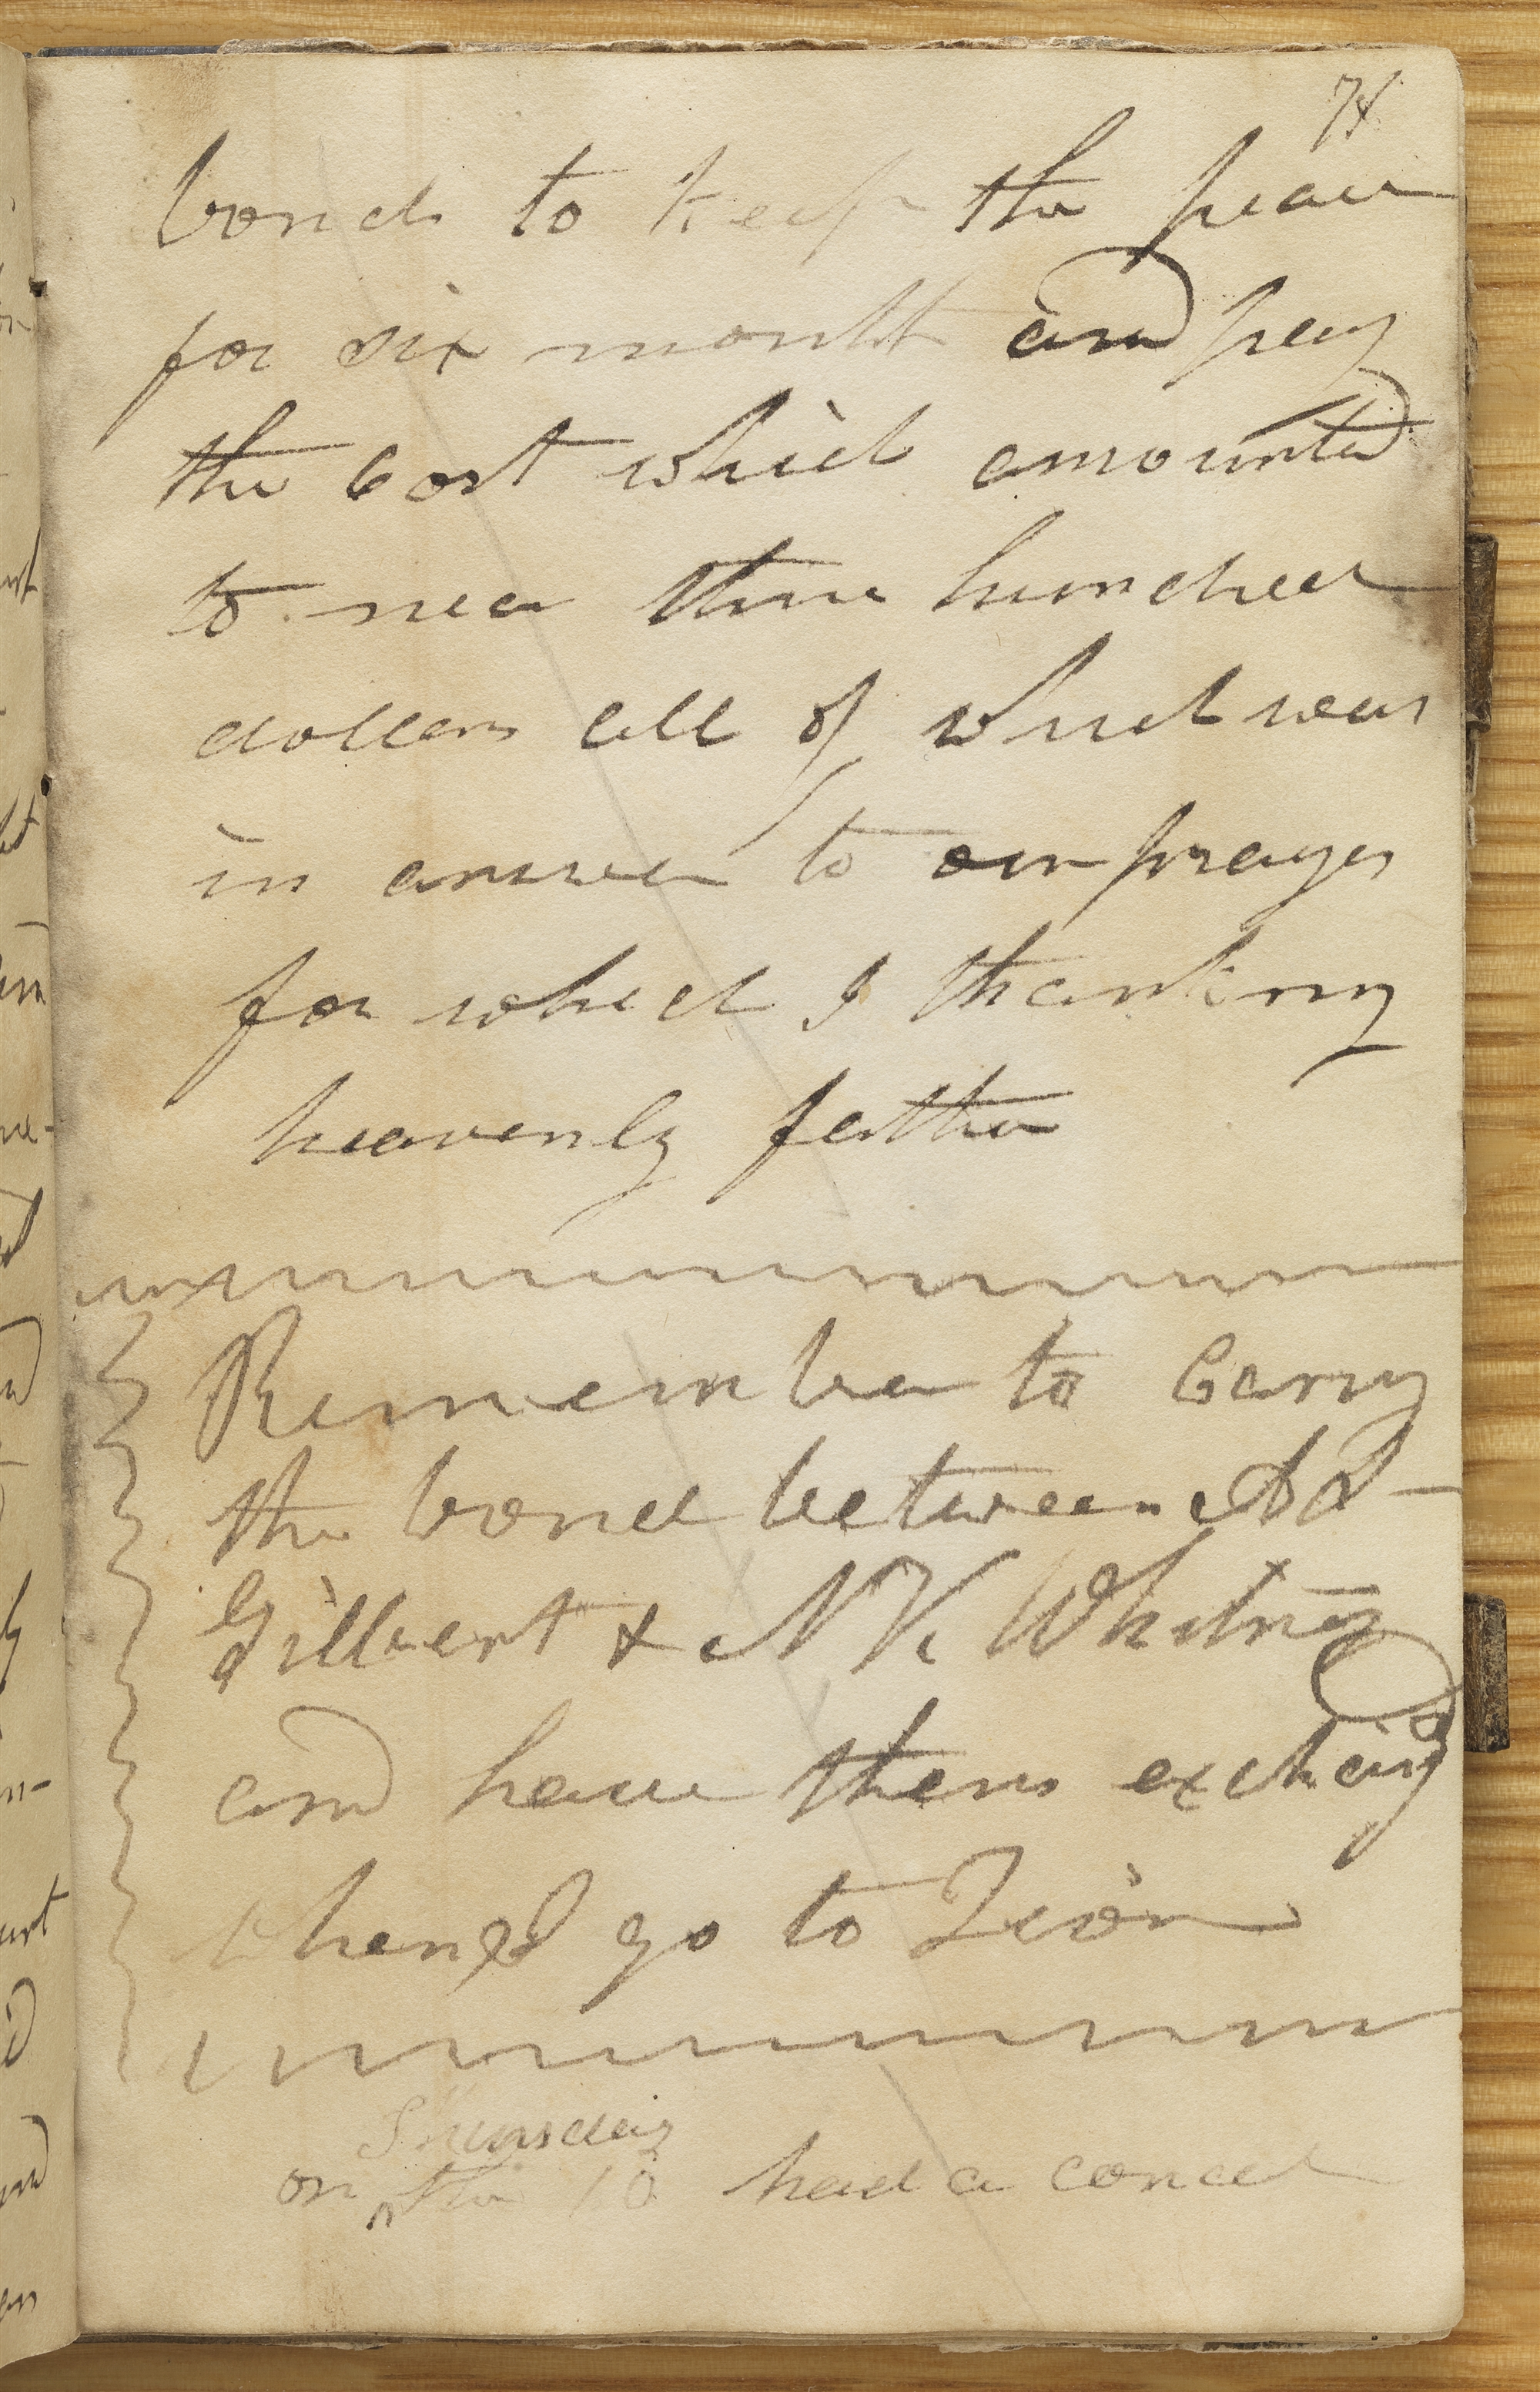 74
bonds to keep the peace
for six month and pay
the cost which amounted
to near three hundred
dollars all of which was
in answer to our prayer
for which I thank my
heavenly father
Remember to Carry
the bond between A S
Gilbert & N K Whitney
and have them exchang d
when I go to Zion
Thursday
on the 10 had a concil